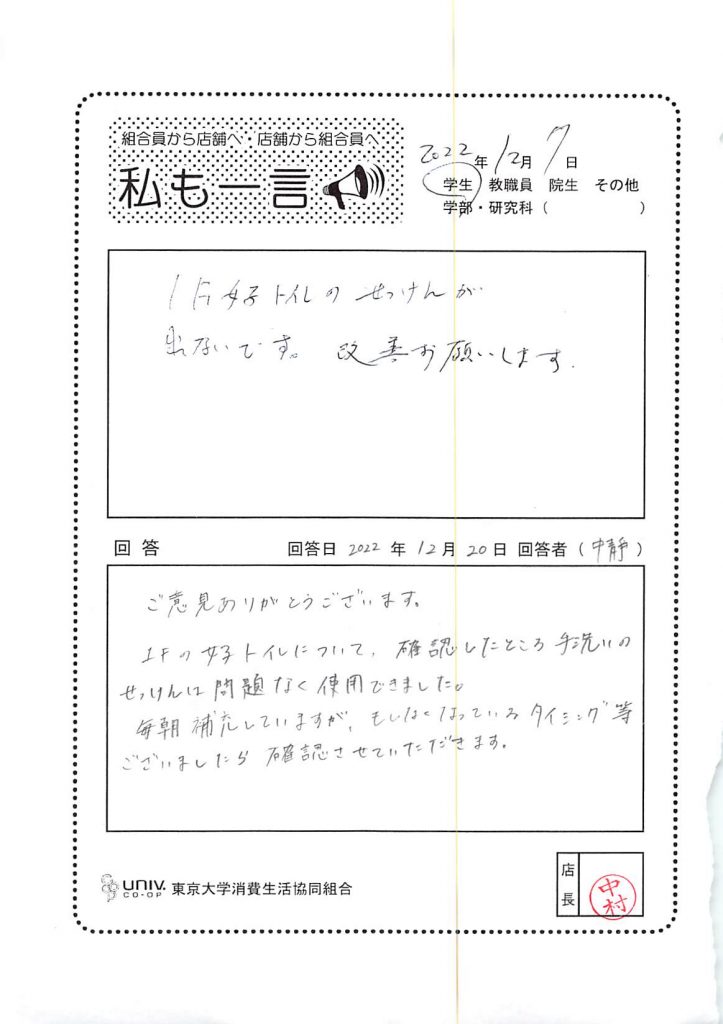 組合員から店舗へ・店舗から組合員へ
私も一言
2022年12月7日
学生 教職員 院生 その他
学部・研究科( )
1F女子トイレのせっけんが
出ないです。改善お願いします。
回答 回答日 2022年12月20日 回答者(中靜)
ご意見ありがとうございます。
1Fの女子トイレについて、確認したところ手洗いの
せっけんは問題なく使用できました。
毎朝補充していますが、もしなくなっているタイミング等
ございましたら確認させていただきます。
UNIV. CO-OP 東京大学消費生活協同組合
店長 中村